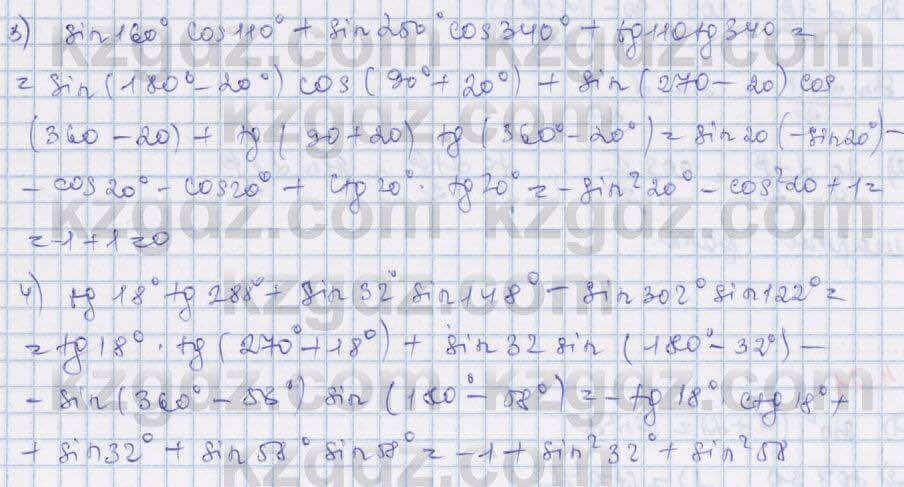 3) sin160° cos110° + sin250° cos340° + tg110tg340 =
= sin(180°-20°) cos(90°+20°) + sin(270-20) cos
(360-20) + tg(90+20) tg(360°-20°) = sin20(-sin20°) -
- cos20° - cos20° + ctg20°. tg20° = -sin²20° - cos²20 + 1 =
= -1+1=0
4) tg18° tg288° + sin32° sin148° - sin302° sin122° =
= tg18° · tg(270°+18°) + sin32 sin(180°-32°) -
- sin(360° - 58°) sin(180° - 58°) = - tg18° ctg18° +
+ sin32° + sin58° sin58° = -1 + sin²32° + sin²58
kzgdz.com
kzgdz.com
kzgdz.com
kzgdz.com
kzgdz.com